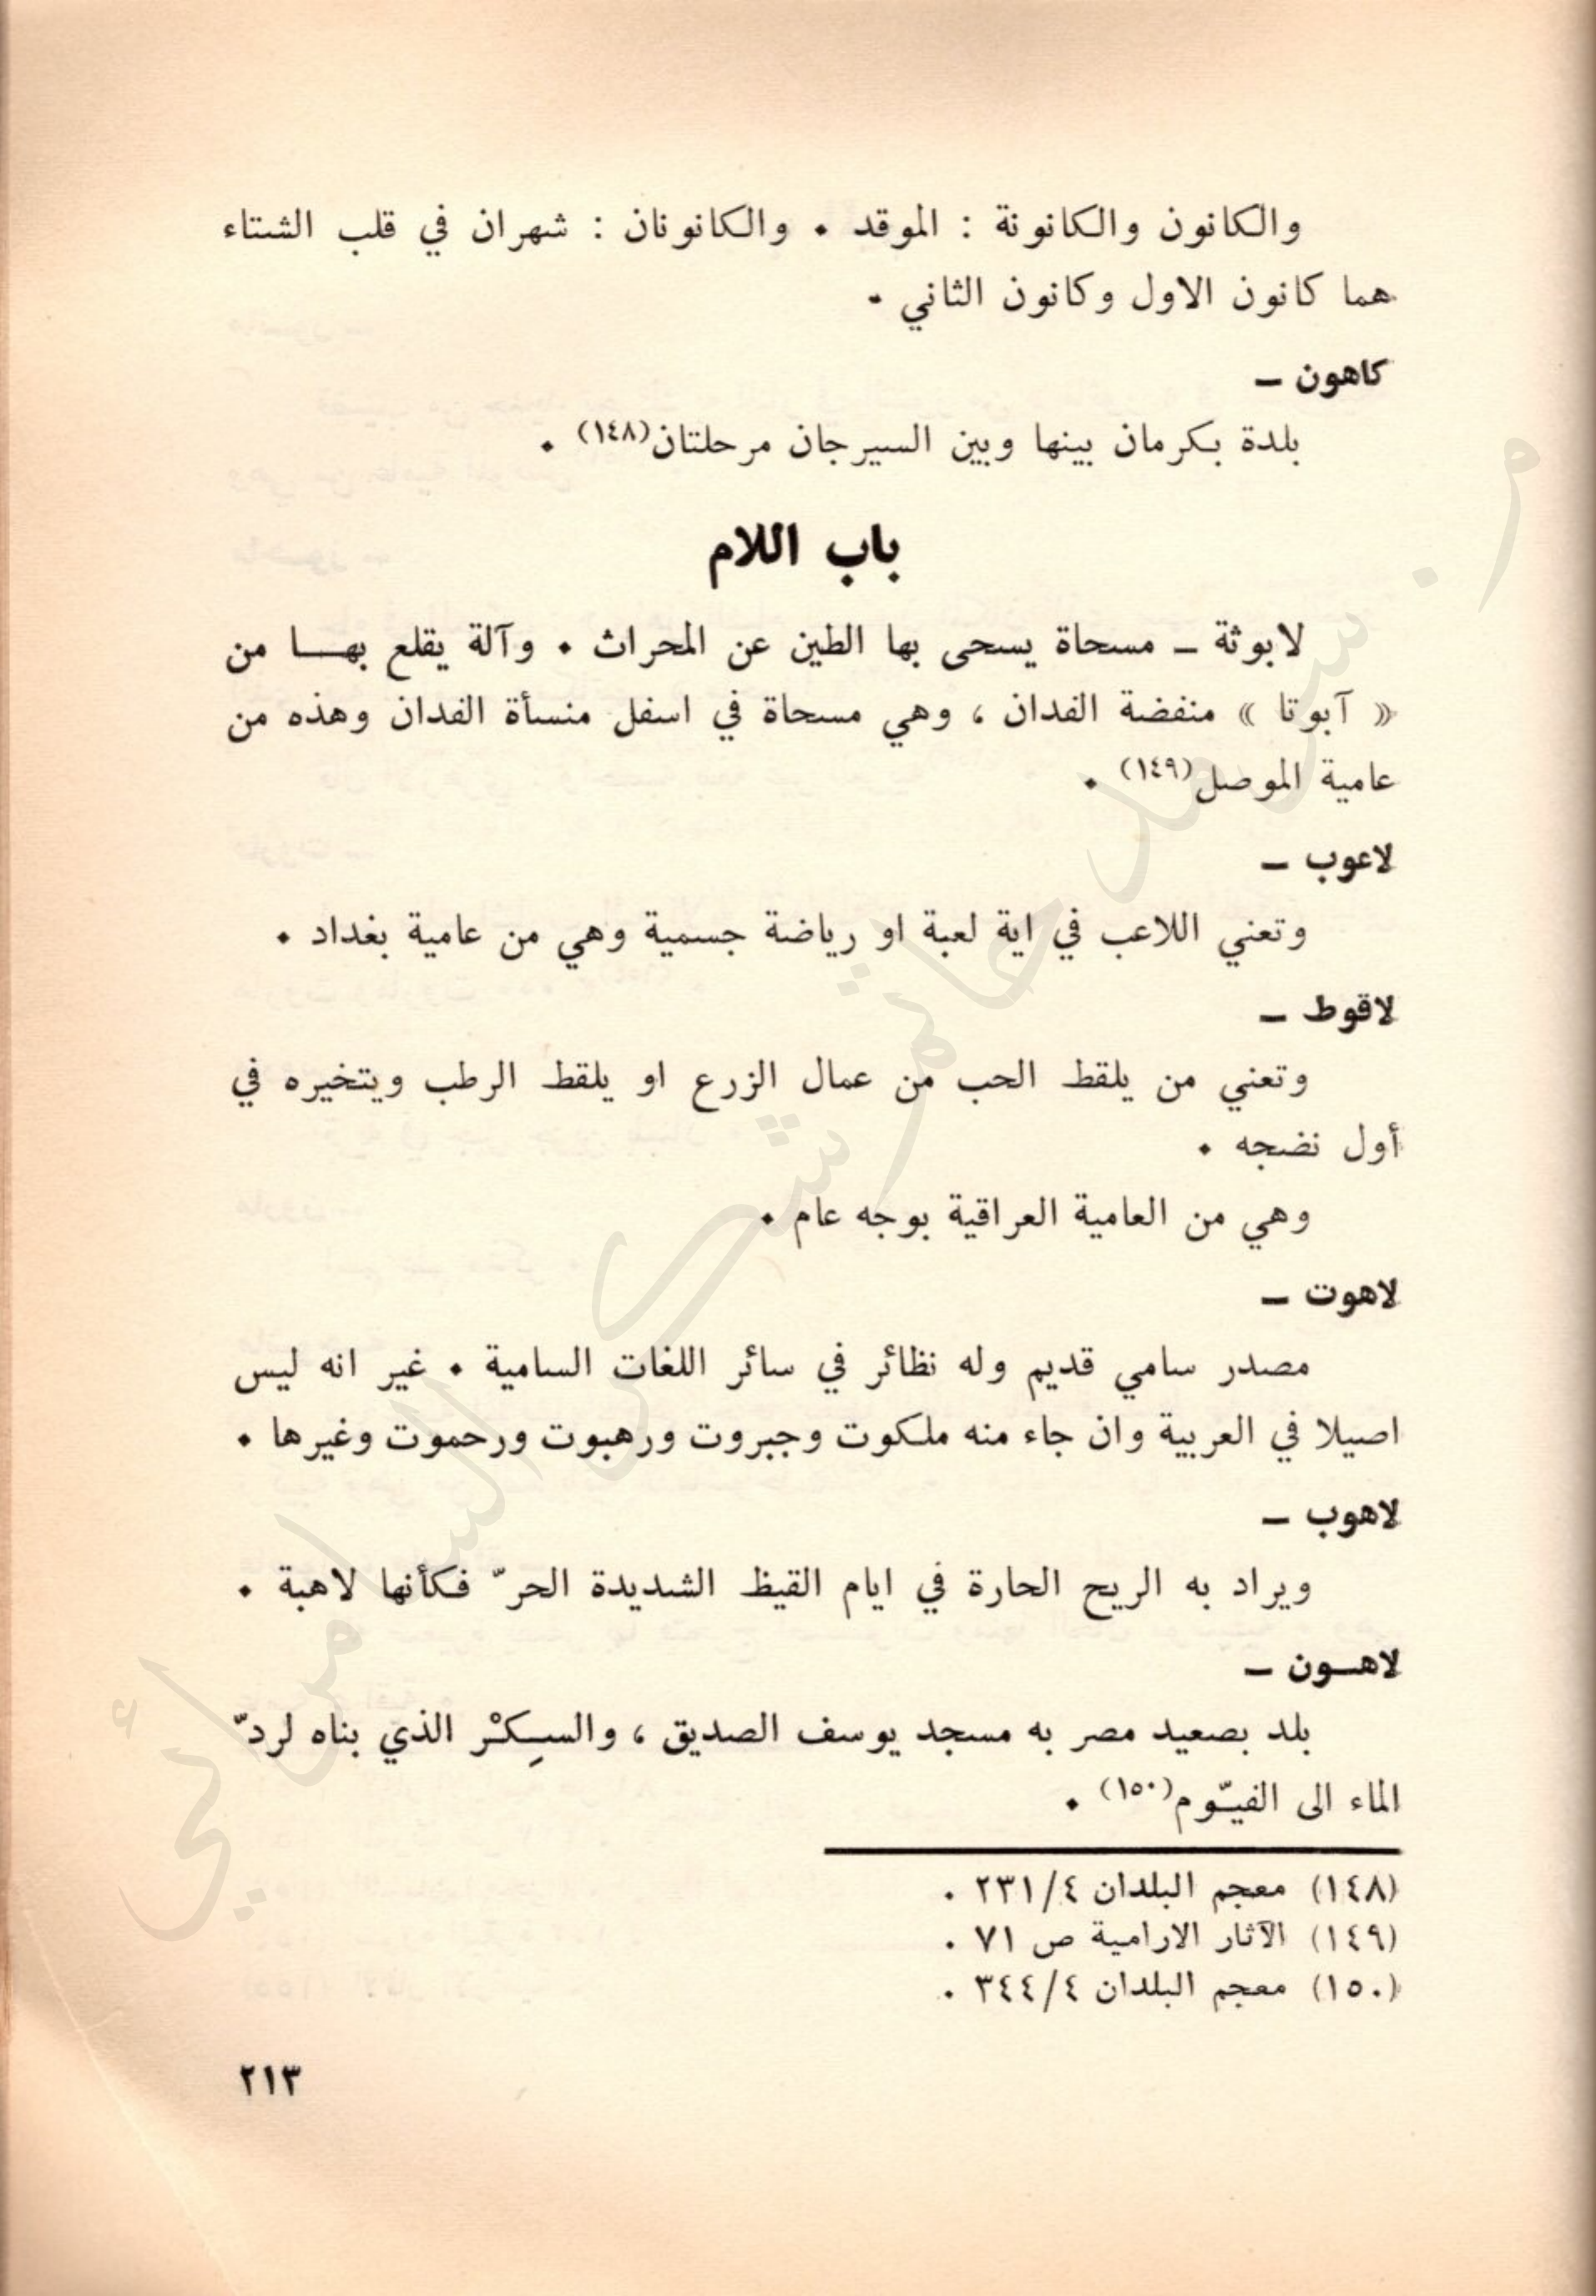 والكانون والكانونة : الموقد . والكانونان : شهران في قلب الشتاء
هما كانون الاول وكانون الثاني .
كاهون –
بلدة بكرمان بينها وبين السيرجان مرحلتان(١٤٨) .
باب اللام
لابوثة – مسحاة يسحى بها الطين عن المحراث . وآلة يقلع بهـــا من
« آبوتا » منفضة الفدان ، وهي مسحاة في اسفل منسأة الفدان وهذه من
عامية الموصل(١٤٩) .
لاعوب –
وتعني اللاعب في اية لعبة او رياضة جسمية وهي من عامية بغداد .
لاقوط –
وتعني من يلقط الحب من عمال الزرع او يلقط الرطب ويتخيره في
أول نضجه .
وهي من العامية العراقية بوجه عام .
لاهوت –
مصدر سامي قديم وله نظائر في سائر اللغات السامية . غير انه ليس
اصيلا في العربية وان جاء منه ملكوت وجبروت ورهبوت ورحموت وغيرها .
لاهوب –
ويراد به الريح الحارة في ايام القيظ الشديدة الحرّ فكأنها لاهبة .
لاهــون –
بلد بصعيد مصر به مسجد يوسف الصديق ، والسِكْر الذي بناه لردّ
الماء الى الفيّوم(١٥٠) .
(١٤٨) معجم البلدان ٢٣١/٤ .
(١٤٩) الآثار الارامية ص ٧١ .
(١٥٠) معجم البلدان ٣٤٤/٤ .
٢١٣